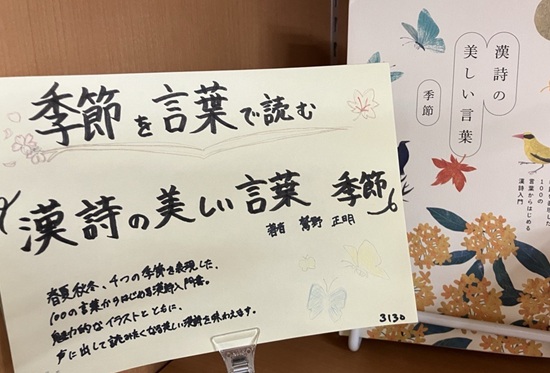 季節を言葉で読む
漢詩の美しい言葉 季節
著者 鷲野 正明
春夏秋冬、4つの季節を表現した、
100の言葉からはじめる漢詩入門書。
魅力的なイラストとともに、
声に出して読みたくなる美しい漢詩を味わえます。
3130
漢詩の
美しい言葉
季節
100の
言葉からはじめる
漢詩入門